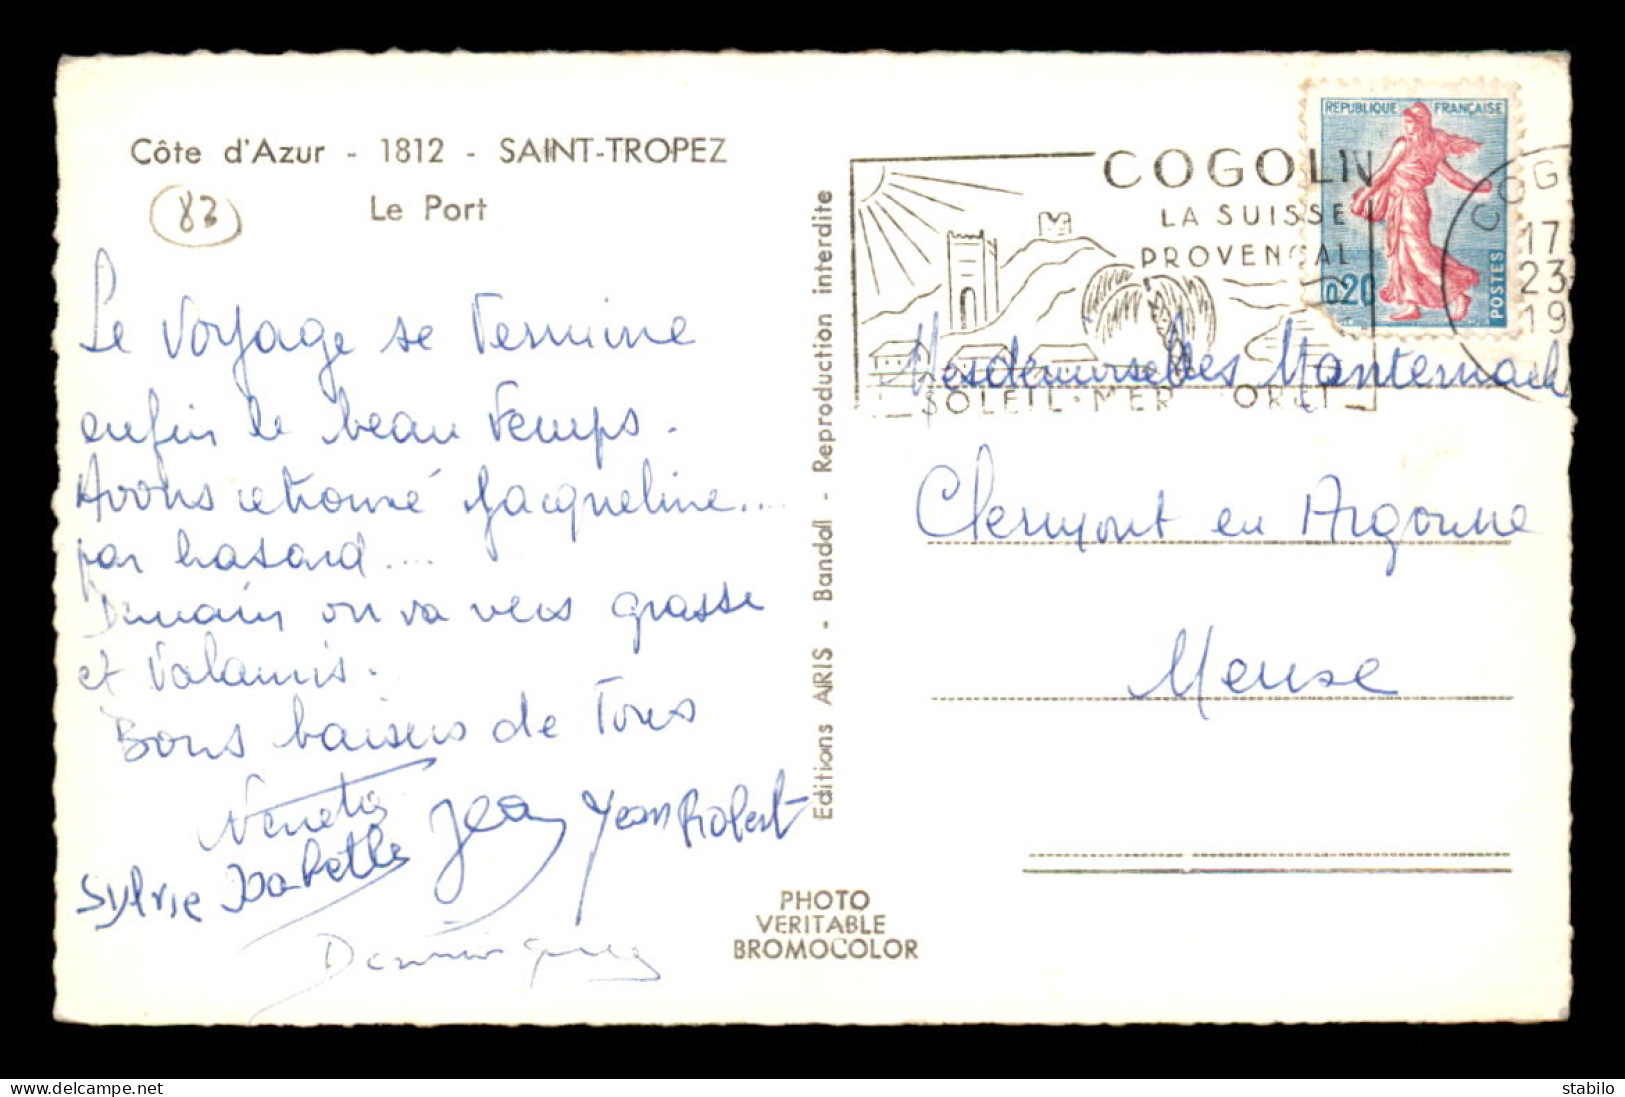 Côte d'Azur - 1812 - SAINT-TROPEZ
Le Port
83
Le Voyage se Termine
enfin le beau Temps.
Avons retrouvé Jacqueline....
par hasard....
Demain on va vers grasse
et Valauris.
Bons baisers de Tous
Jean Jean Robert
Sylvie Isabelle
Dominique
Editions ARIS - Bandol - Reproduction interdite
PHOTO
VERITABLE
BROMOCOLOR
COGOLIN
LA SUISSE
PROVENCAL
SOLEIL·MER
REPUBLIQUE FRANÇAISE
0,20
POSTES
COG
17
23
19
Mesdemoiselles Manternach
Clermont en Argonne
Meuse
www.delcampe.net
stabilo